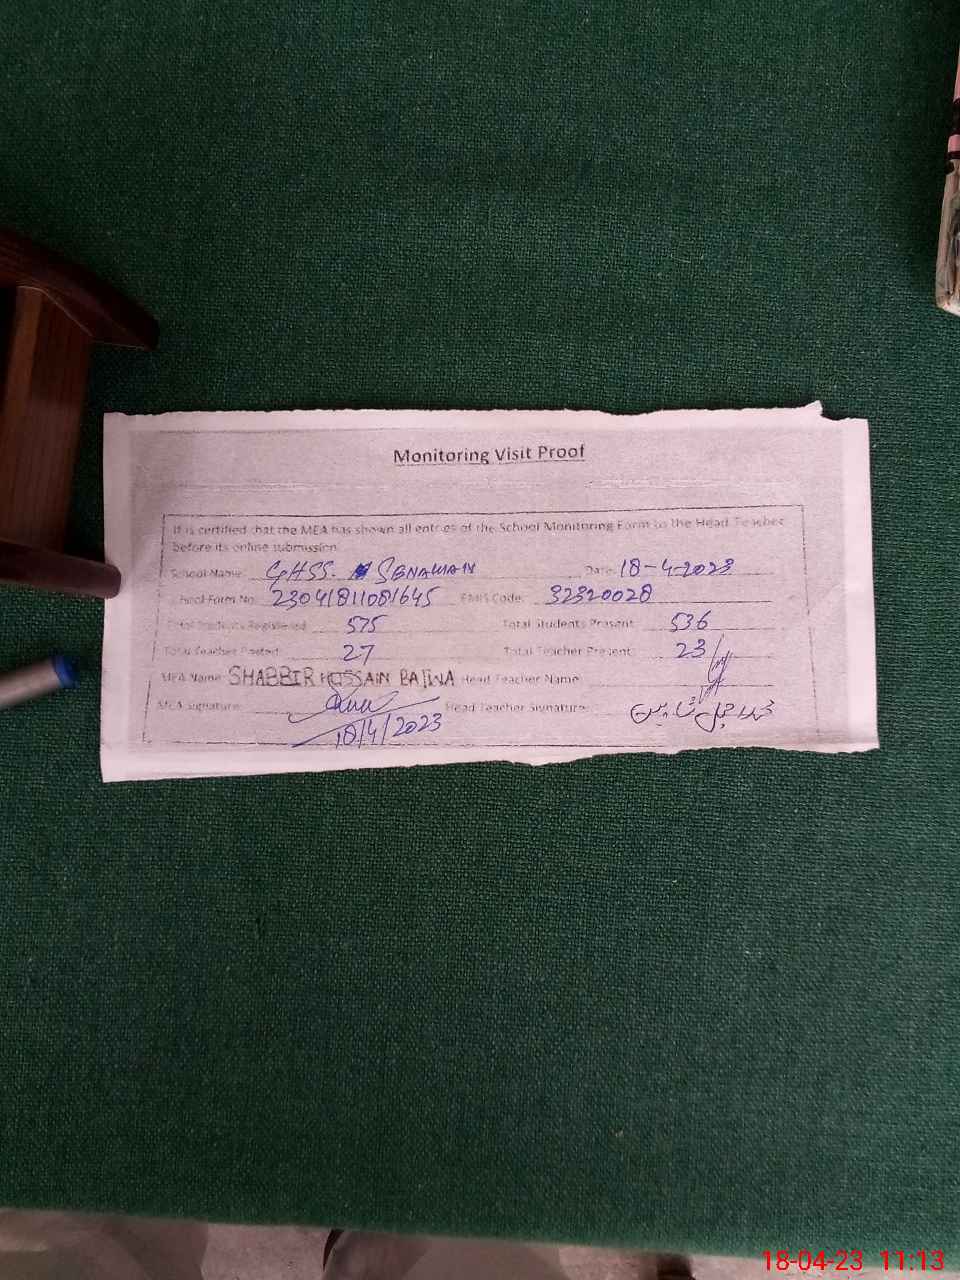 Monitoring Visit Proof
It is certified that the MEA has shown all entries of the School Monitoring Form to the Head Teacher
before its online submission
School Name: GHSS. SENAWAN Date: 18-4-2023
School Form No: 23041811081645 EMIS Code: 32320028
Total Students Registered 575 Total Students Present: 536
Total Teacher Posted: 27 Total Teacher Present: 23
MEA Name: SHABBIR HUSSAIN BAJWA Head Teacher Name:
MEA Signature: Head Teacher Signature:
18/4/2023
18-04-23 11:13